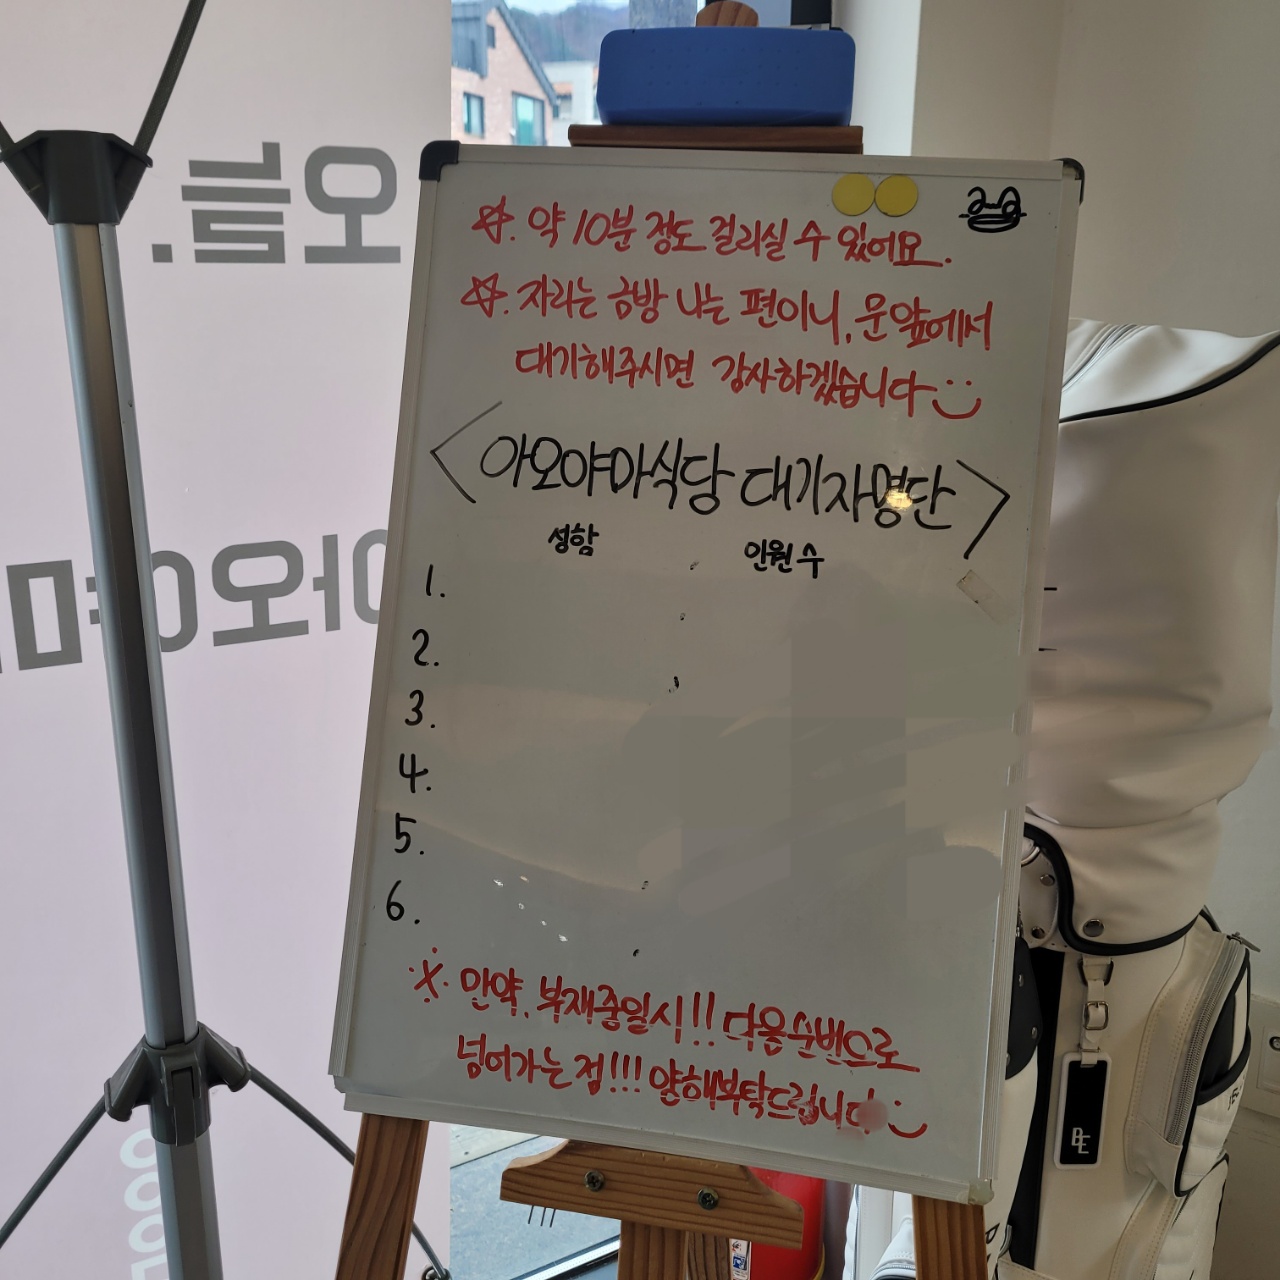 ☆. 약 10분 정도 걸리실 수 있어요.
☆. 자리는 금방 나는 편이니, 문앞에서
대기해주시면 감사하겠습니다
<아오야마식당 대기자명단>
성함 인원수
1.
2.
3.
4.
5.
6.
※. 만약, 부재중일시!! 다음순번으로
넘어가는 점!!! 양해부탁드립니다
오늘.
아오야마
BE